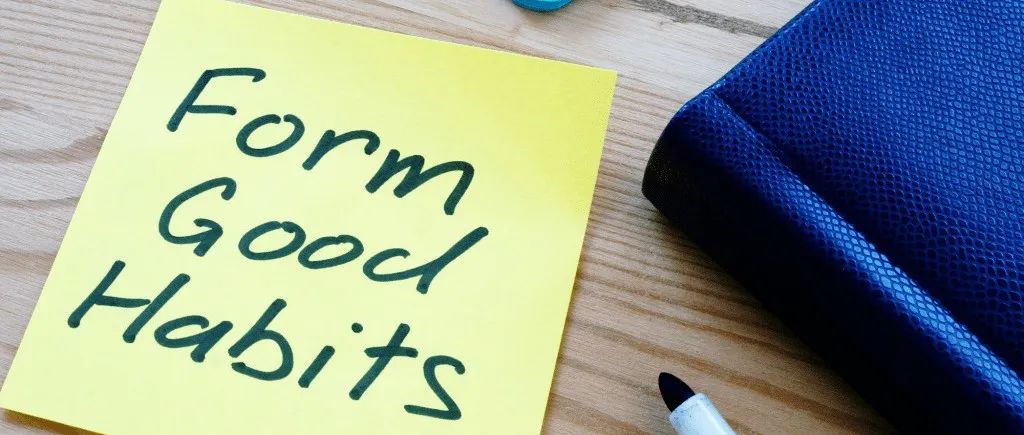 Form
Good
Habits